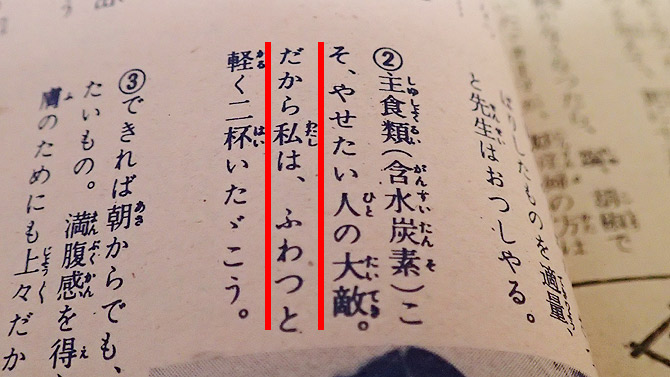 ぱりしたものを適量
と先生はおつしやる。
②主食類(含水炭素)こ
そ、やせたい人の大敵。
だから私は、ふわつと
軽く二杯いたゞこう。
③できれば朝からでも、
たいもの。満腹感を得
膚のためにも上々だか